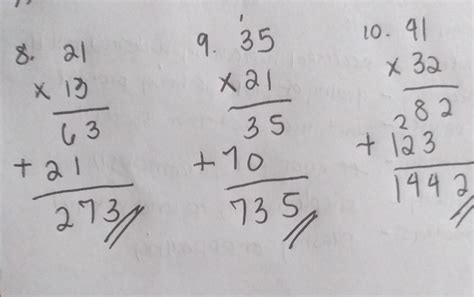 8. 21
x 13
63
+ 21
273
9. 35
x 21
35
+ 70
735
10. 41
x 32
82
+ 123
1442